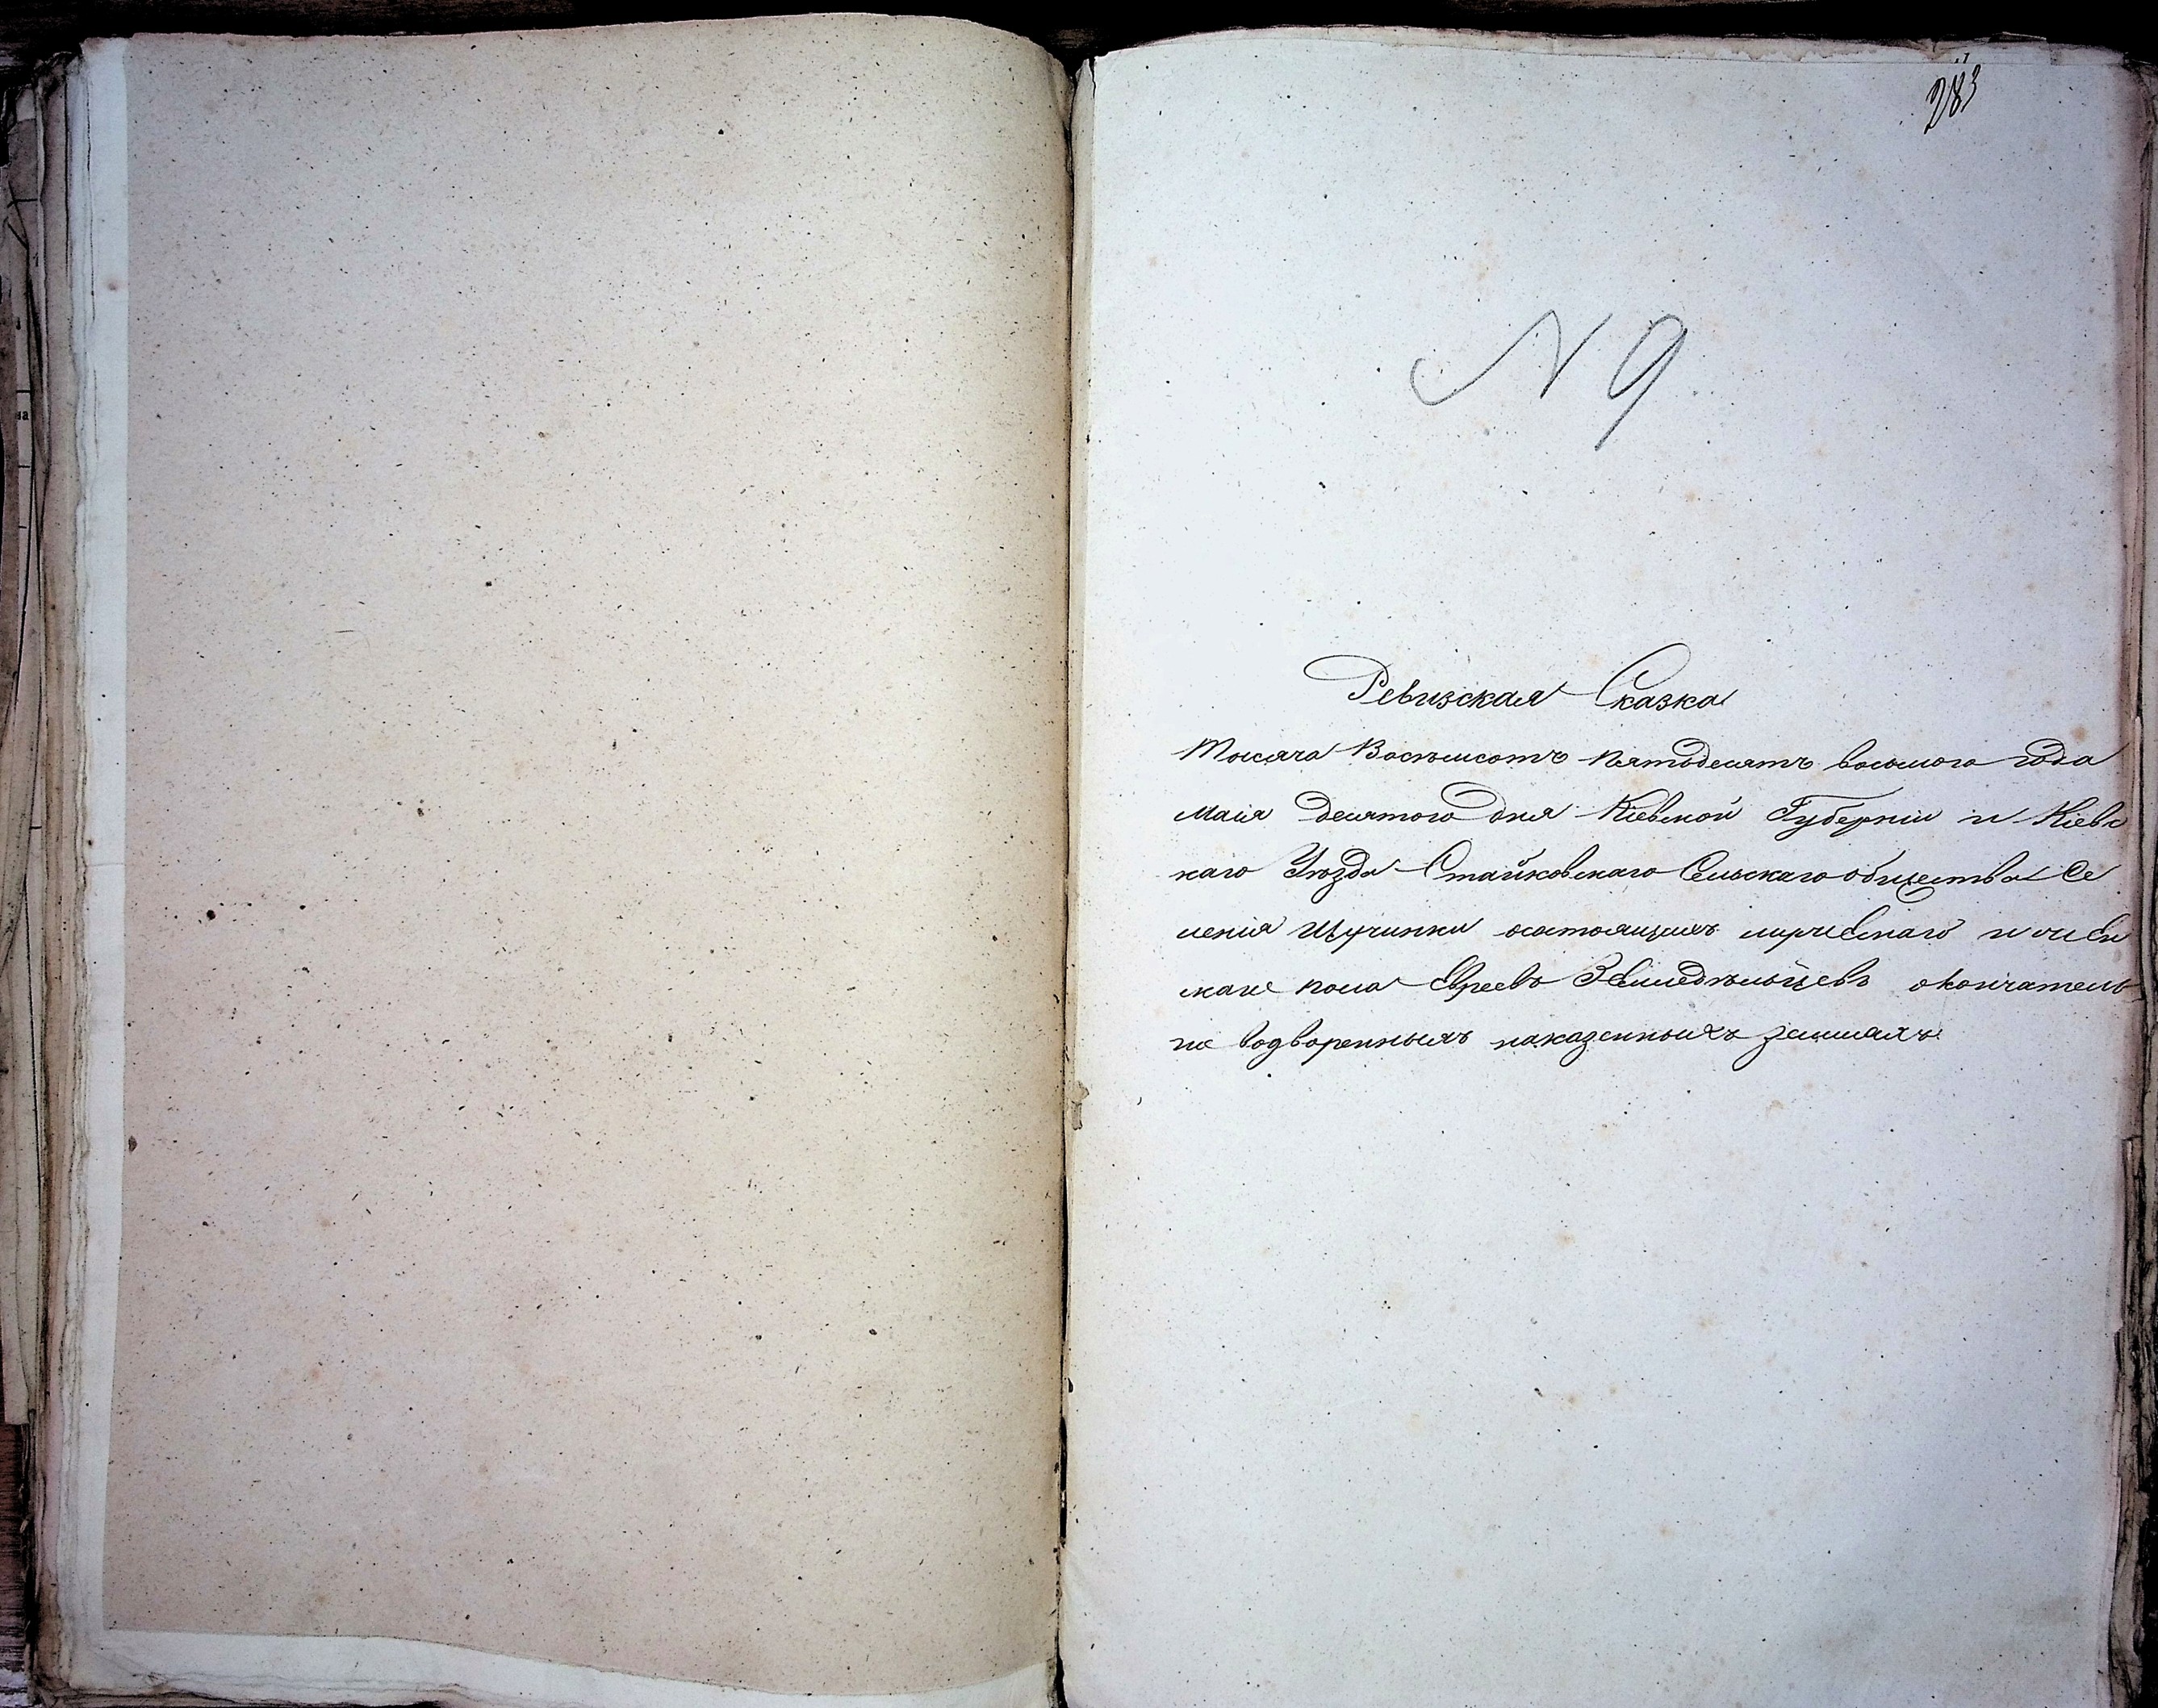 283
N 9
Ревизская Сказка
Тысяча Восемсотъ Пятьдесятъ восьмого года
Маія десятого дня Кіевской Губерніи и Кіевс
каго Уюзда Стайковскаго Сельскаго общества Се
ленія Щучинки состоящихъ мужескаго и женс
каго пола Евреевъ Земледѣльцевъ окончатель
но водворенныхъ наказенныхъ земляхъ